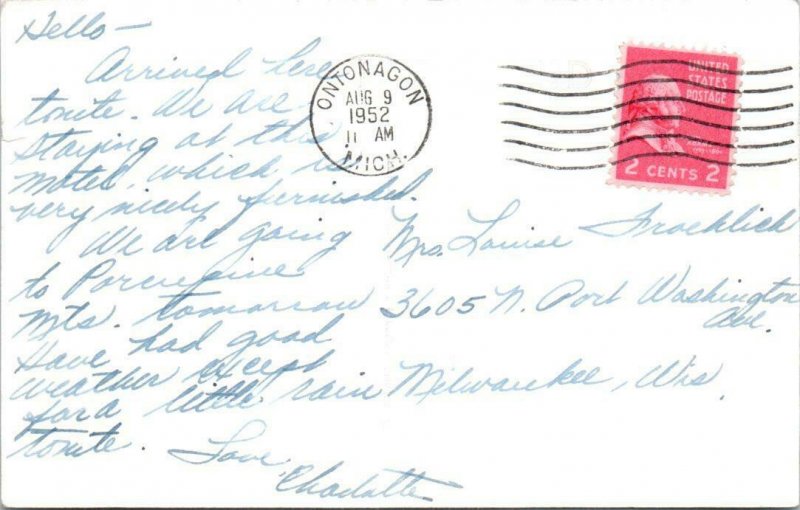 Hello —
Arrived here
tonite. We are
staying at this
motel, which is
very nicely furnished.
We are going
to Porcupine
Mts. tomorrow
Have had good
weather except
for a little rain
tonite. Love,
Charlotte
ONTONAGON
AUG 9
1952
11 AM
MICH.
UNITED
STATES
POSTAGE
2 CENTS 2
Mrs. Louise Froehlich
3605 N. Port Washington
Ave.
Milwaukee, Wis.